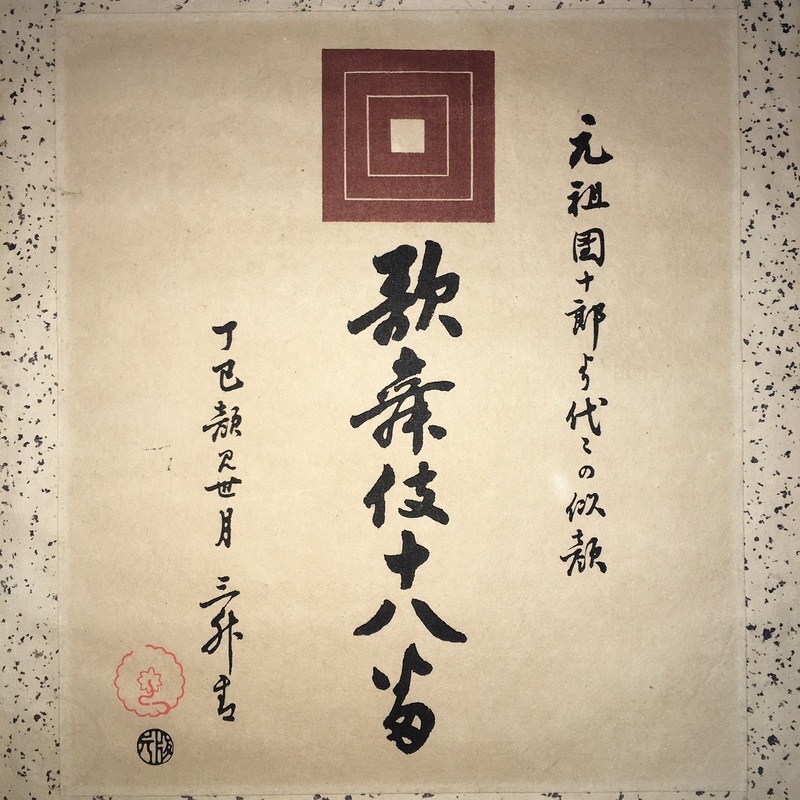 元祖團十郎より代々の似顔
歌舞伎十八番
丁巳顔見世月 三升書
版元